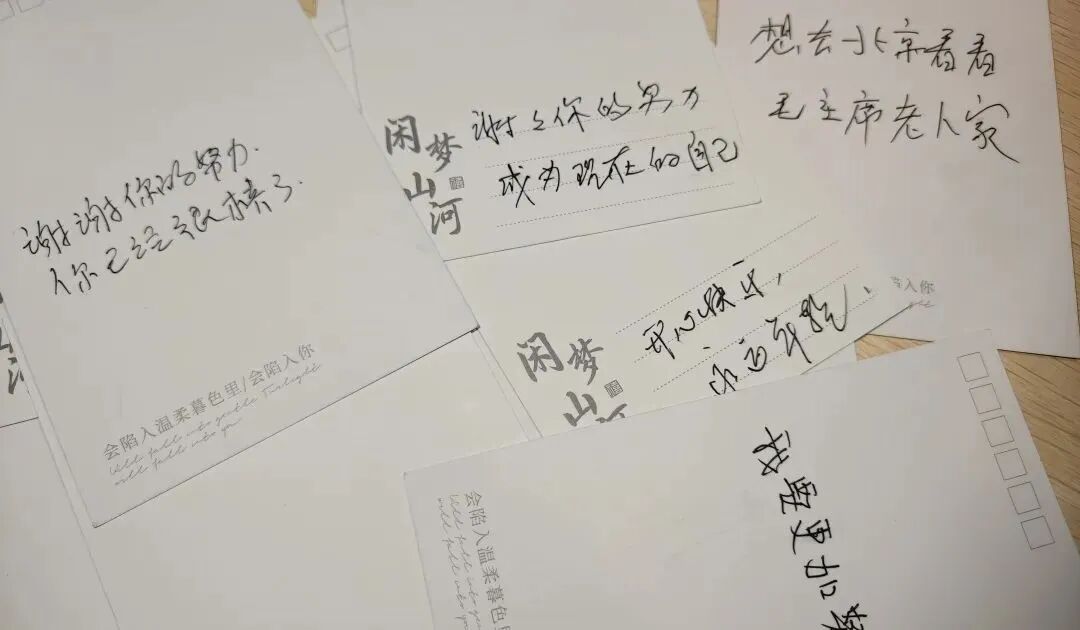 谢谢你的努力.
你已经很棒了.
会陷入温柔暮色里/会陷入你
闲梦
山河
谢々你的努力
成为现在的自己
想去北京看看
毛主席老人家
闲梦
山河
开心快乐,
永远年轻.
会陷入温柔暮色里
我要更加